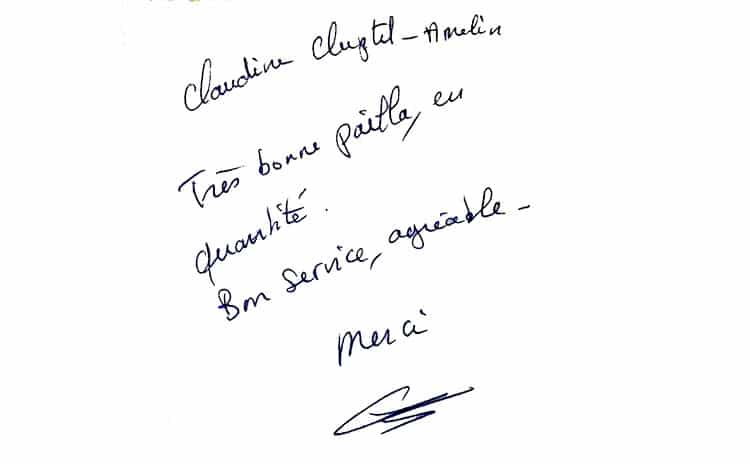 Claudine Cluztel - Amelin
Très bonne païlla, en
quantité.
Bon service, agréable -
Merci